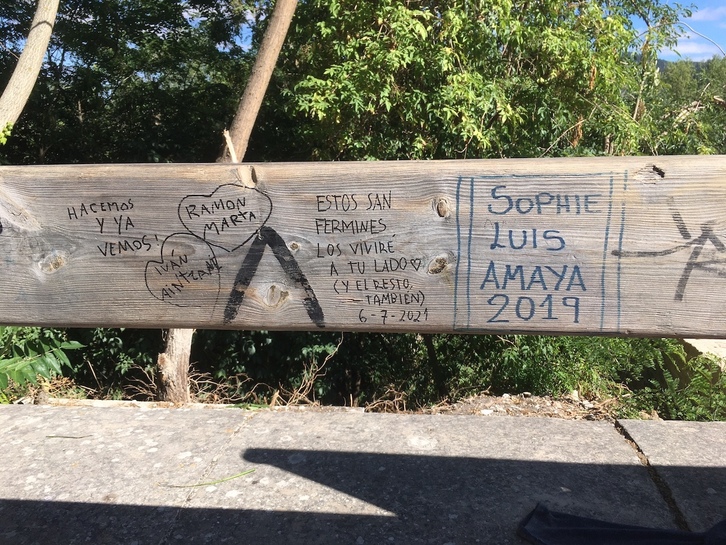 HACEMOS
Y YA
VEMOS!
RAMON
MARTA
IVÁN
AINTZANE
ESTOS SAN
FERMINES,
LOS VIVIRÉ
A TU LADO♡
(Y EL RESTO,
TAMBIÉN)
6-7-2021
SOPHIE
LUIS
AMAYA
2019